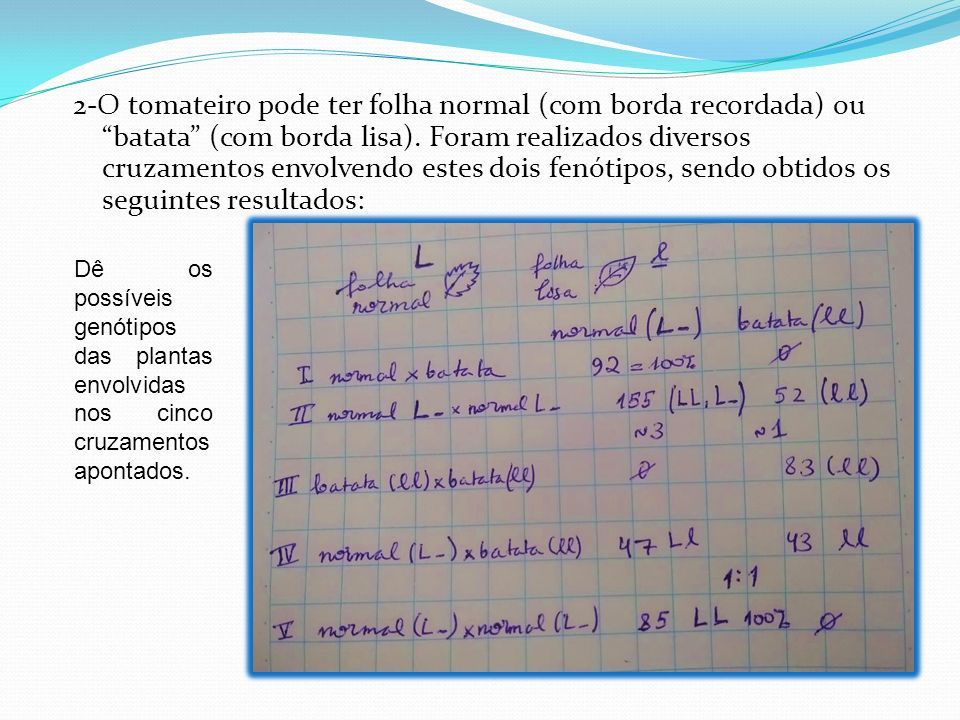 2-O tomateiro pode ter folha normal (com borda recordada) ou
“batata” (com borda lisa). Foram realizados diversos
cruzamentos envolvendo estes dois fenótipos, sendo obtidos os
seguintes resultados:
Dê os
possíveis
genótipos
das plantas
envolvidas
nos cinco
cruzamentos
apontados.
L
folha
normal
folha
lisa
l
normal (L_) batata (ll)
I normal x batata 92 = 100% ∅
II normal L_ x normal L_ 155 (LL, L_) 52 (ll)
~3 ~1
III batata (ll) x batata (ll) ∅ 83 (ll)
IV normal (L_) x batata (ll) 47 Ll 43 ll
1:1
V normal (L_) x normal (L_) 85 LL 100% ∅